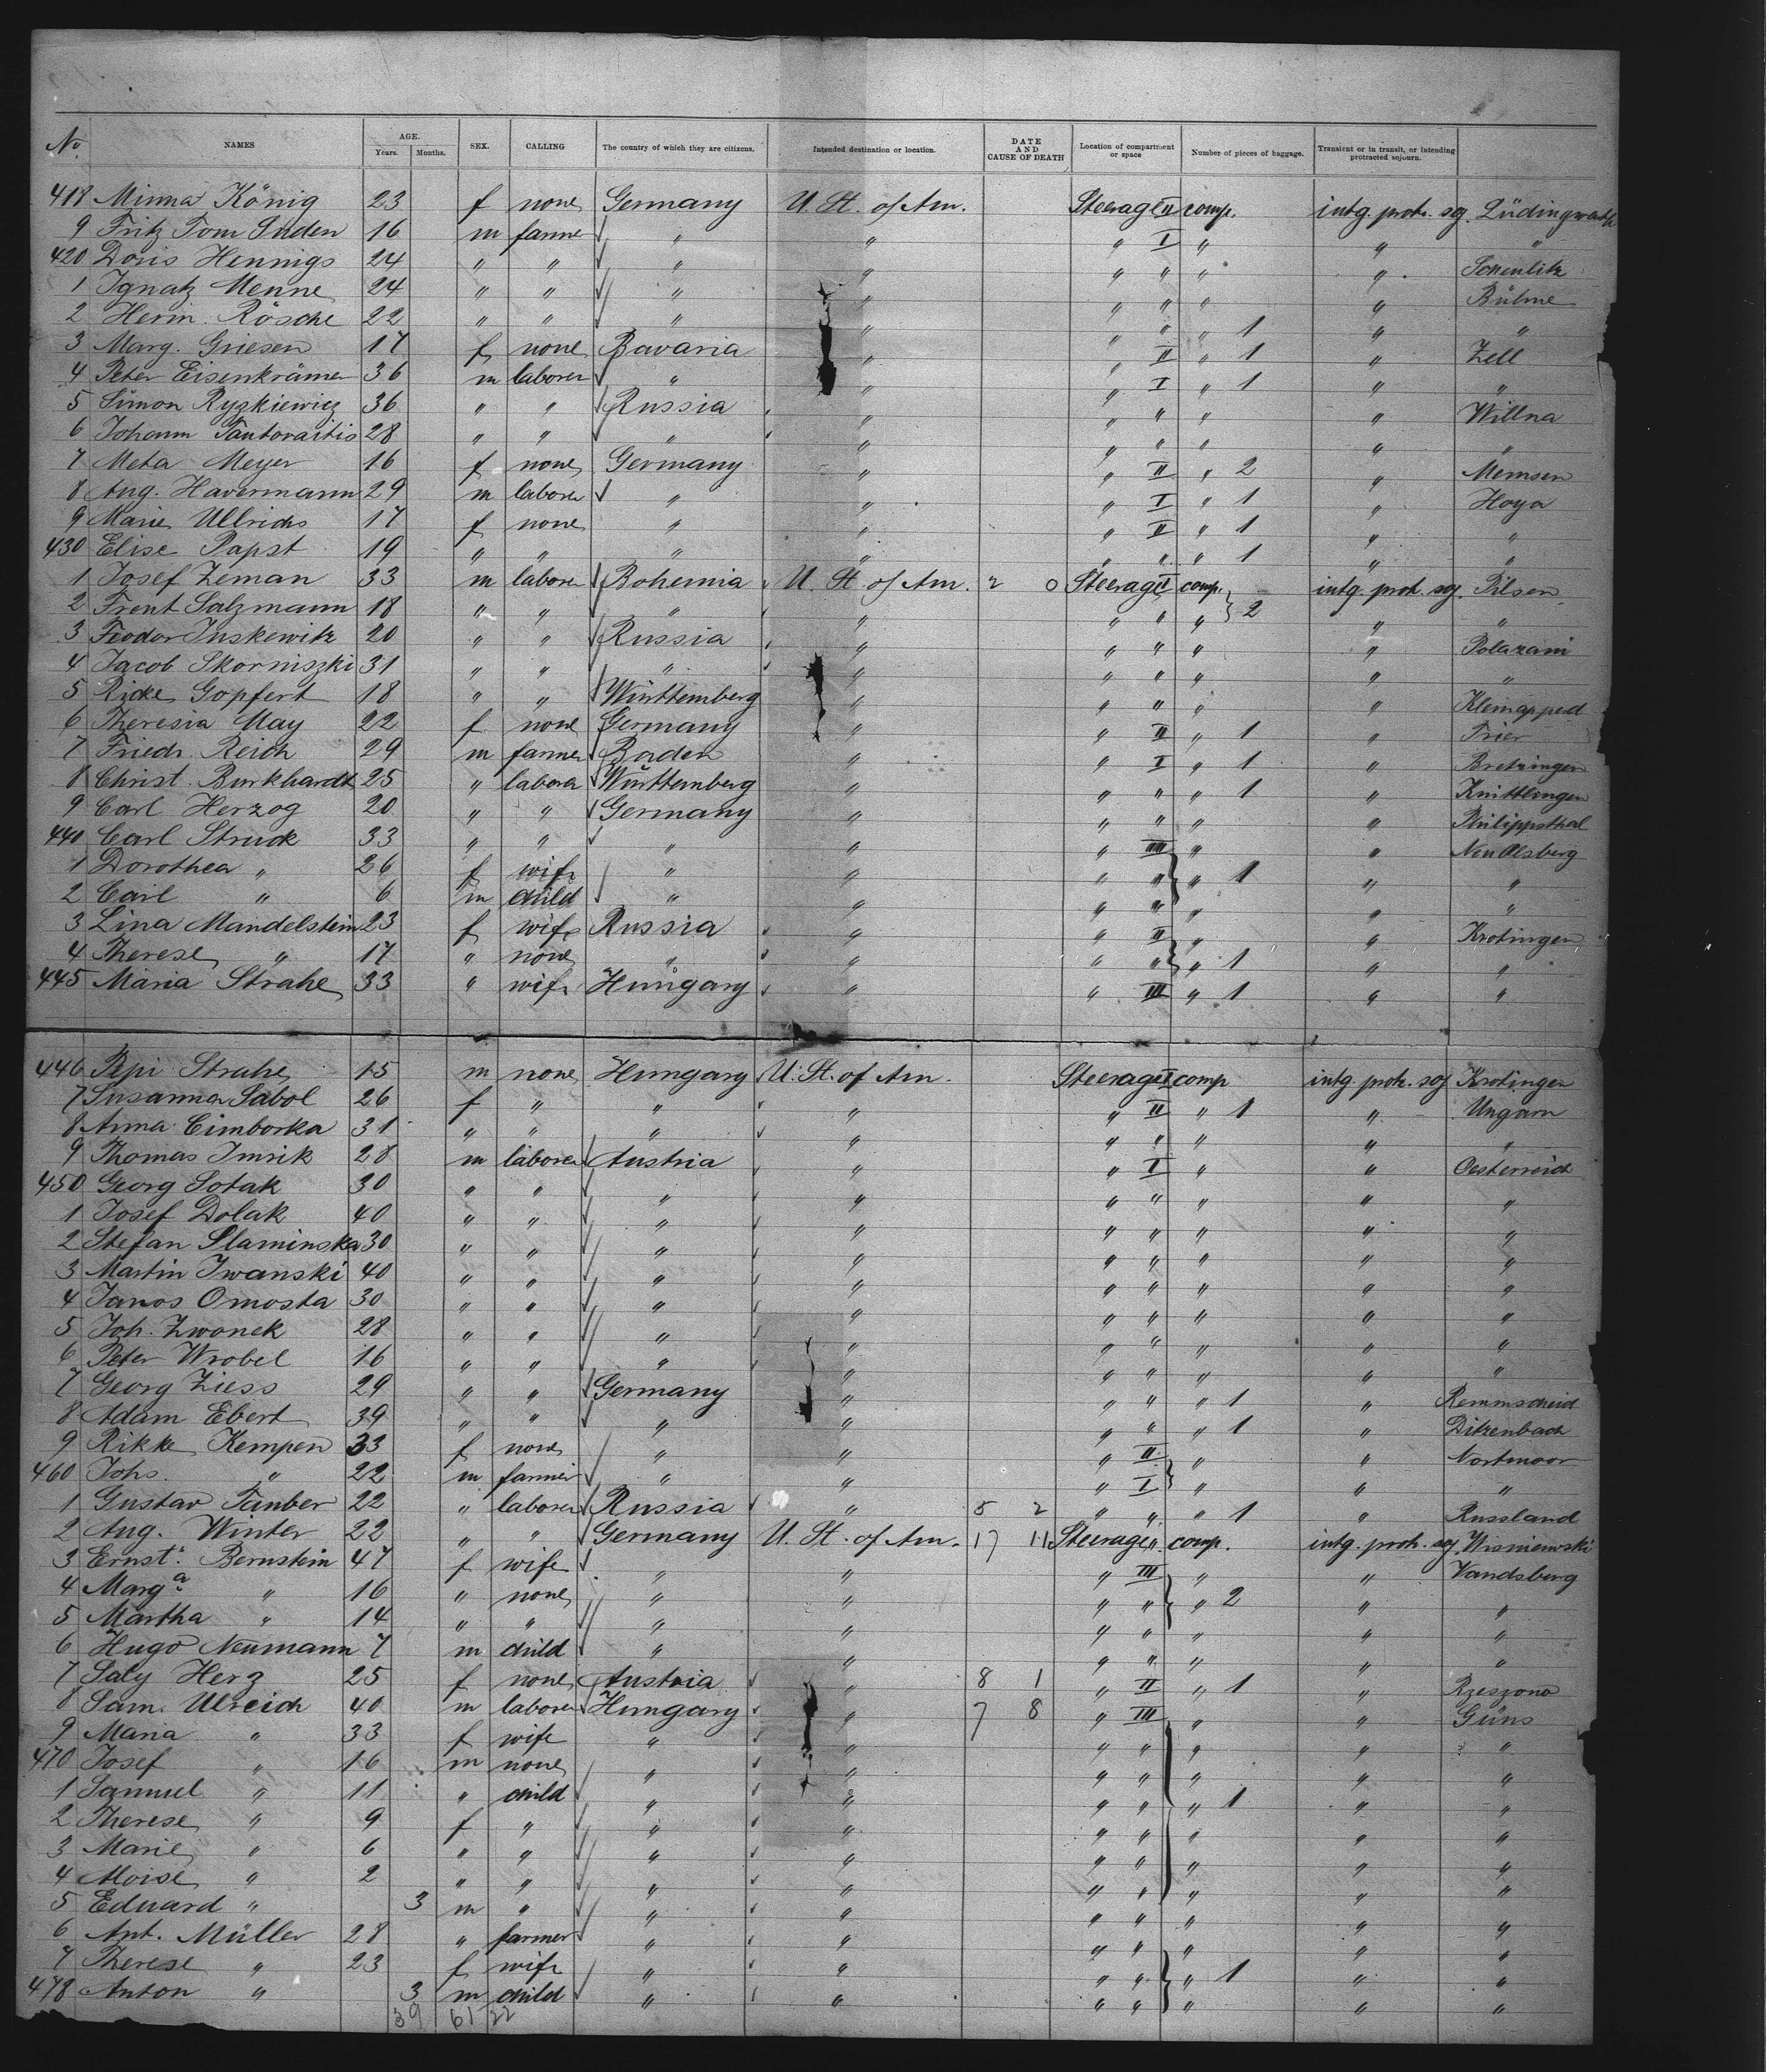 No. NAMES AGE. Years. Months. SEX. CALLING The country of which they are citizens. Intended destination or location. DATE AND CAUSE OF DEATH Location of compartment or space Number of pieces of baggage. Transient or in transit, or intending protracted sojourn.
418 Minna König 23 f none Germany U. St. of Am. Steerage II comp. intg. protr. soj. Lüdingworth
9 Fritz Tom Suden 16 m farmer " " " I " " "
420 Doris Hennigs 24 " " " " " " " "
1 Ignatz Menne 24 " " " " " " " " Bülme
2 Herm. Rösche 22 " " " " " " " 1 " "
3 Marg. Griesen 17 f none Bavaria " " II " 1 " Zell
4 Peter Eisenkrämer 36 m laborer " " " I " 1 " "
5 Simon Ryzkiewicz 36 " " Russia " " " " " Willna
6 Johann Tautovaitis 28 " " " " " " " " "
7 Meta Meyer 16 f none Germany " " II " 2 " Memsen
8 Aug. Havermann 29 m laborer " " " I " 1 " Hoya
9 Marie Ullrichs 17 f none " " " II " 1 " "
430 Elise Papst 19 " " " " " " " 1 " "
1 Josef Zeman 33 m laborer Bohemia U. St. of Am. 2 0 Steerage I comp. intg. protr. soj. Pilsen
2 Frent Salzmann 18 " " " " " " " 2 " "
3 Feodor Juskewitz 20 " " Russia " " " " "
4 Jacob Skorniszki 31 " " " " " " " " "
5 Ricke Gopfert 18 " " Württemberg " " " " "
6 Theresia May 22 f none Germany " " II " 1 " Trier
7 Friedr. Reich 29 m farmer Baden " " I " 1 " Bretzingen
8 Christ. Burkhardt 25 " laborer Württemberg " " " " 1 " Knittlingen
9 Carl Herzog 20 " " Germany " " " " " Philippsthal
440 Carl Struck 33 " " " " " IIII " " Neu Olsberg
1 Dorothea " 26 f wife " " " " " 1 " "
2 Carl " 6 m child " " " " " " "
3 Lina Mandelstein 23 f wife Russia " " II " " Krotingen
4 Therese " 17 " none " " " " " 1 " "
445 Maria Strahe 33 " wife Hungary " " III " 1 " "
446 Pepi Strahe 15 m none Hungary U. St. of Am. Steerage I comp intg. protr. soj Krotingen
7 Susanna Sabol 26 f " " " " II " 1 " Ungarn
8 Anna Cimborka 31 " " " " " " " " "
9 Thomas Imrik 28 m laborer Austria " " I " " Oesterreich
450 Georg Sotak 30 " " " " " " " " "
1 Josef Dolak 40 " " " " " " " " "
2 Stefan Slaminska 30 " " " " " " " " "
3 Martin Iwanski 40 " " " " " " " " "
4 Janos Omosta 30 " " " " " " " " "
5 Joh. Zwonek 28 " " " " " " " " "
6 Peter Wrobel 16 " " " " " " " " "
7 Georg Ziess 29 " " Germany " " " " 1 " Remmscheid
8 Adam Ebert 39 " " " " " " " 1 " Ditzenbach
9 Rikke Kempen 33 f none " " " II " " Nortmoor
460 Johs. " 22 m farmer " " " I " " "
1 Gustav Tauber 22 " laborer Russia " 5 2 " " " 1 " Russland
2 Aug. Winter 22 " " Germany U. St. of Am. 17 11 Steerage " comp. intg. protr. soj. Wisniewski
3 Ernst. Bernstein 47 f wife " " " III " " Vandsberg
4 Marga " 16 " none " " " " " 2 " "
5 Martha " 14 " " " " " " " " "
6 Hugo Neumann 7 m child " " " " " " "
7 Saly Herz 25 f none Austria " 8 1 " II " 1 " Rzeszono
8 Sam. Ulreich 40 m laborer Hungary " 7 8 " III " " Güns
9 Maria " 33 f wife " " " " " " "
470 Josef " 16 m none " " " " " " "
1 Samuel " 11 " child " " " " " 1 " "
2 Therese " 9 f " " " " " " " "
3 Marie " 6 " " " " " " " " "
4 Moise " 2 " " " " " " " " "
5 Eduard " 3 m " " " " " " " "
6 Ant. Müller 28 " farmer " " " " " " "
7 Therese " 23 f wife " " " " " 1 " "
478 Anton " 3 m child " " " " " " "
39 61 22